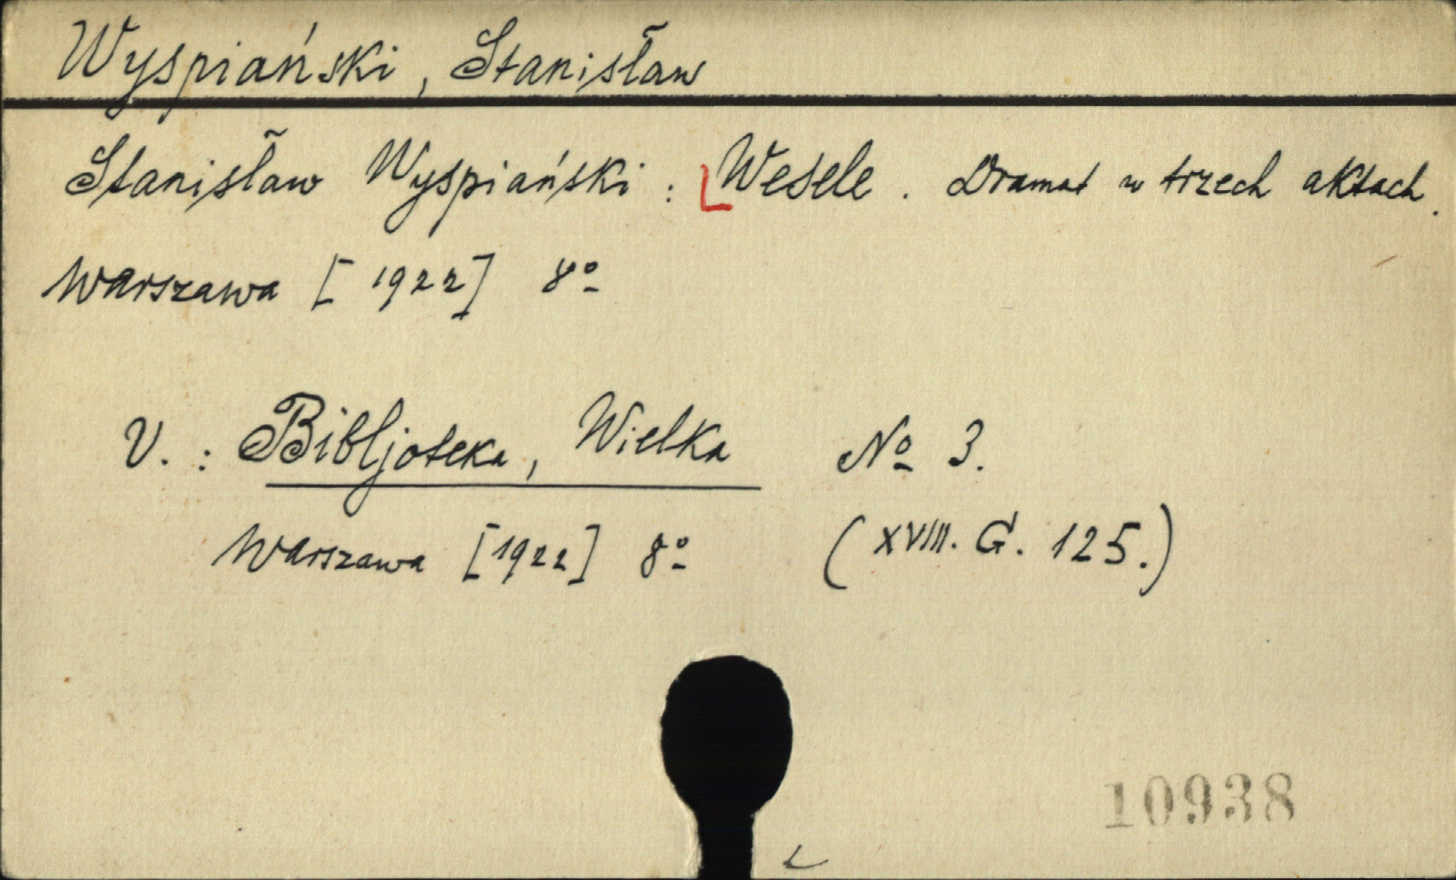 Wyspiański, Stanisław
Stanisław Wyspiański: Wesele. Dramat w trzech aktach.
Warszawa [1922] 8º
V.: Bibljoteka, Wielka Nº 3.
Warszawa [1922] 8º (XVIII. G. 125.)
10938